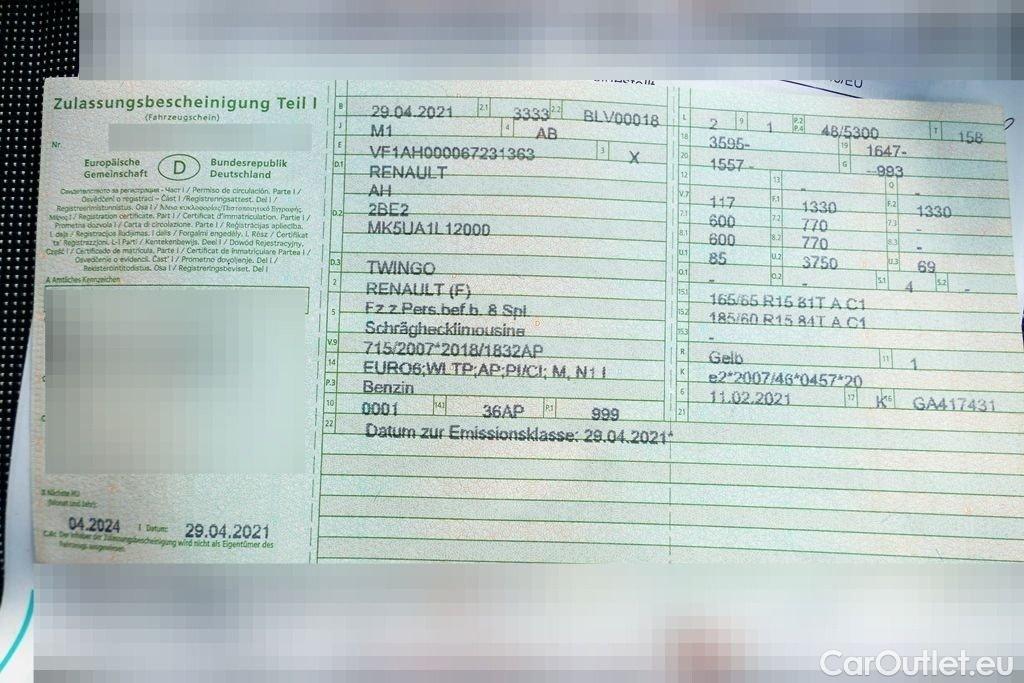 Zulassungsbescheinigung Teil I
(Fahrzeugschein)
Nr.
Europäische Gemeinschaft D Bundesrepublik Deutschland
Свидетелство за регистрация - Част I / Permiso de circulación. Parte I /
Osvědčení o registraci - Část I / Registreringsattest. Del I /
Prometna dozvola / Carta di circolazione. Parte I / Reģistrācijas apliecība.
Osvedčenie o evidencii. Časť I / Prometno dovoljenje. Del I /
Rekisteröintitodistus. Osa I / Registreringsbeviset. Del I
A Amtliches Kennzeichen
X Nächste HU
(Monat und Jahr):
04.2024 I Datum: 29.04.2021
C.4c: Der Inhaber der Zulassungsbescheinigung wird nicht als Eigentümer des
Fahrzeugs ausgewiesen
B 29.04.2021 2.1 3333 2.2 BLV00018
J M1 4 AB
E VF1AH000067231363 3 X
D.1 RENAULT
AH
D.2 2BE2
MK5UA1L12000
D.3 TWINGO
2 RENAULT (F)
5 Fz.z.Pers.bef.b. 8 Spl
Schräghecklimousine
V.9 715/2007*2018/1832AP
14 EURO6;WLTP;AP;PI/CI; M, N1 I
P.3 Benzin
10 0001 14.1 36AP P.1 999
22 Datum zur Emissionsklasse: 29.04.2021*
L 2 9 1 P.2 P.4 48/5300 T 158
18 3595- 19 1647-
20 1557- G --993
12 - 13 - Q -
V.7 117 F.1 1330 F.2 1330
7.1 600 7.2 770 7.3 -
8.1 600 8.2 770 8.3 -
U.1 85 U.2 3750 U.3 69
O.1 - O.2 - S.1 4 S.2 -
15.1 165/65 R15 81T A C1
15.2 185/60 R15 84T A C1
15.3 -
R Gelb 11 1
K e2*2007/46*0457*20
6 11.02.2021 17 K 16 GA417431
21
CarOutlet.eu